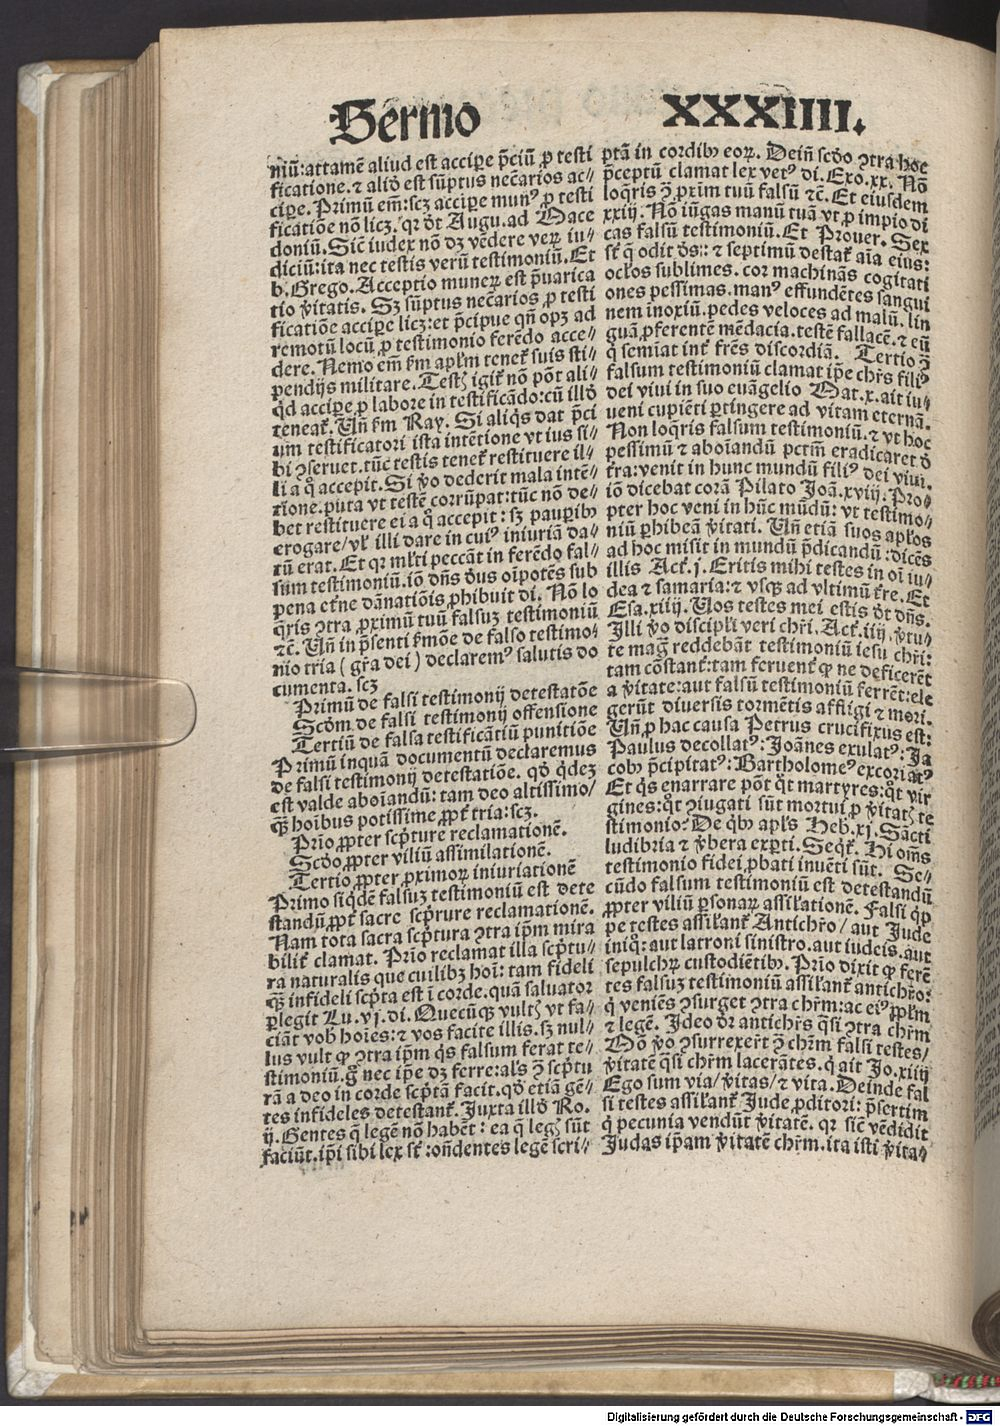 Sermo XXXIIII.
niũ: attamē aliud est accipe p̄ciũ ꝓ testi
ficatione. ⁊ aliđ est sũptus nec̄arios ac⸗
cipe. Primũ em̄: scꝫ accipe munꝰ ꝓ testi
ficatiõe nõ licꝫ. qꝛ đt Augu. ad Mace
doniũ. Sic̄ iudex nõ dꝫ vēdere veꝝ iu⸗
diciũ: ita nec testis verũ testimoniũ. Et
b. Grego. Acceptio muneꝝ est p̄uarica
tio v̄itatis. Sꝫ sũptus nec̄arios ꝓ testi
ficatiõe accipe licꝫ: et p̄cipue qñ opꝫ ad
remotũ locũ ꝓ testimonio ferēdo acce⸗
dere. Nemo em̄ ẜm apl̄m tenet̃ suis sti⸗
pendijs militare. Testꝭ igit̃ nõ põt ali⸗
qđ accipe ꝓ labore in testificãdo: cũ illđ
teneat̃. Uñ ẜm Ray. Si aliq̃s dat p̄ci
um testificatori ista intētione vt ius si⸗
bi ꝯseruet. tũc testis tenet̃ restituere il⸗
li a q̊ accepit. Si v̊o dederit mala intē⸗
tione. puta vt testē corrũpat: tũc nõ de⸗
bet restituere ei a q̊ accepit: sꝫ pauꝑibꝰ
erogare/ vl̃ illi dare in cuiꝰ iniuriã da⸗
tũ erat. Et qꝛ ml̃ti peccãt in ferēdo fal⸗
sum testimoniũ. iõ dñs đus oīpotēs sub
pena et̃ne dãnatiõis ꝓhibuit di. Nõ lo
q̃ris ꝯtra ꝓximũ tuũ falsuꝫ testimoniũ
⁊c̄. Uñ in p̄senti ẜmõe de falso testimo⸗
nio tria (gr̃a dei) declaremꝰ salutis do
cumenta. scꝫ
Primũ de falsi testimonij detestatõe
Scđm de falsi testimonij offensione
Tertiũ de falsa testificãtiũ punitiõe
Primũ inquã documentũ declaremus
de falsi testimonij detestatiõe. qđ q̃deꝫ
est valde aboĩandũ: tam deo altissimo/
qꝫ̃ hoĩbus potissime ꝓpt̃ tria: scꝫ.
Prĩo ꝓpter scp̃ture reclamationē.
Scđo ꝓpter viliũ assimilationē.
Tertio ꝓpter ꝓximoꝝ iniuriationē
Primo siq̃dē falsuꝫ testimoniũ est dete
standũ ꝓpt̃ sacre scp̃rure reclamationē.
Nam tota sacra scp̃tura ꝯtra ip̄m mira
bilit̃ clamat. Prĩo reclamat illa scp̃tu⸗
ra naturalis que cuilibꝫ hoĩ: tam fideli
qꝫ̃ infideli scp̃ta est ĩ corde. quã saluator
ꝑlegit Lu. vj. di. Quecũqꝫ vultꝭ vt fa⸗
ciãt vob̃ hoĩes: ⁊ vos facite illis. sꝫ nul⸗
lus vult ꝙ ꝯtra ip̄m q̃s falsum ferat te⸗
stimoniũ. g̊ nec ip̄e dꝫ ferre: al̃s ꝯ̃ scp̃tu
rã a deo in corde scp̃tã facit. qđ etiã gē⸗
tes infideles detestant̃. Juxta illđ Ro.
ij. Gentes q̃ legē nõ habēt: ea q̃ legꝭ sũt
faciũt. ip̄i sibi lex st̃: oñdentes legē scri⸗
ptã in cordibꝰ eoꝝ. Deiñ scđo ꝯtra hoc
p̄ceptũ clamat lex vetꝰ di. Exo. xx. Nõ
loq̃ris ꝯ̃ ꝓxim̃ tuũ falsũ ⁊c̄. Et eiusdem
xxiij. Nõ iũgas manũ tuã vt ꝓ impio di
cas falsũ testimoniũ. Et Prouer. Sex
st̃ q̃ odit đs:: ⁊ septimũ destat̃ aĩa eius:
ocl̃os sublimes. cor machinãs cogitati
ones pessimas. manꝰ effundētes sangui
nem ĩnoxiũ. pedes veloces ad malũ. lin
guã ꝓferentē mēdacia. testē fallacē. ⁊ eũ
q̃ semĩat int̃ fr̃es discordiã. Tertio ꝯ̃
falsum testimoniũ clamat ip̄e chr̃s filiꝰ
dei viui in suo euãgelio Mat. x. ait iu⸗
ueni cupiēti ꝑtingere ad vitam eternã.
Non loq̃ris falsum testimoniũ. ⁊ vt hoc
pessimũ ⁊ aboĩandũ pctm̃ eradicaret đ
t̃ra: venit in hunc mundũ filiꝰ dei viui.
iõ dicebat corã Pilato Joã. xviij. Pro⸗
pter hoc veni in hũc mũdũ: vt testimo⸗
niũ ꝑhibeã v̄itati. Uñ etiã suos apl̃os
ad hoc misit in mundũ p̄dicandũ: dicēs
illis Act̃. j. Eritis mihi testes in oĩ iu⸗
dea ⁊ samaria: ⁊ vsqꝫ ad vltimũ t̃re. Et
Esa. xliij. Uos testes mei estis đt dñs.
Illi v̊o discipl̃i veri chr̃i. Act̃. iiij. v̄tu⸗
te mag̃ reddebãt testimoniũ iesu chr̃i:
tam cõstant̃: tam feruent̃ ꝙ ne deficerēt
a v̄itate: aut falsũ testimoniũ ferrēt: ele
gerũt diuersis tormētis affligi ⁊ mori.
Uñ ꝓ hac causa Petrus crucifixus est:
Paulus decollatꝰ: Joãnes exulatꝰ: Ja
cobꝰ p̄cipitatꝰ: Bartholomeꝰ excoriatꝰ
Et q̃s enarrare põt q̃t martyres: q̃t vir
gines: q̃t ꝯiugati sũt mortui ꝓ v̄itatꝭ te
stimonio? De q̃bꝰ apl̃s Heb. xj. Sãcti
ludibria ⁊ v̄bera exꝑti. Seqt̃. Hi om̃s
testimonio fidei ꝓbati inuēti sũt. Se⸗
cũdo falsum testimoniũ est detestandũ
ꝓpter viliũ ꝑsonaꝝ assil̃ationē. Falsi q̃p
pe testes assil̃ant̃ Antichr̃o/ aut Jude
iniq̊: aut latroni sinistro. aut iudeis. aut
sepulchꝝ custodiētibꝰ. Prĩo dixit ꝙ ferē
tes falsuꝫ testimoniũ assil̃ant̃ antichr̃o:
q̃ veniēs ꝯsurget ꝯtra chr̃m: ac eiꝰ ꝓpl̃m
⁊ legē. Ideo đr antichr̃s q̃si ꝯtra chr̃m
Mõ v̊o ꝯsurrexer̃t ꝯ̃ chr̃m falsi testes/
v̄itatē q̃si chr̃m lacerãtes. q̃ ait Jo. xiiij
Ego sum via/ v̄itas/ ⁊ vita. Deinde fal
si testes assil̃ant̃ Jude ꝓditori: p̄sertim
q̃ pecunia vendũt v̄itatē. qꝛ sic̄ vēdidit
Judas ip̄am v̄itatē chr̃m. ita isti v̄ita⸗
Digitalisierung gefördert durch die Deutsche Forschungsgemeinschaft - DFG